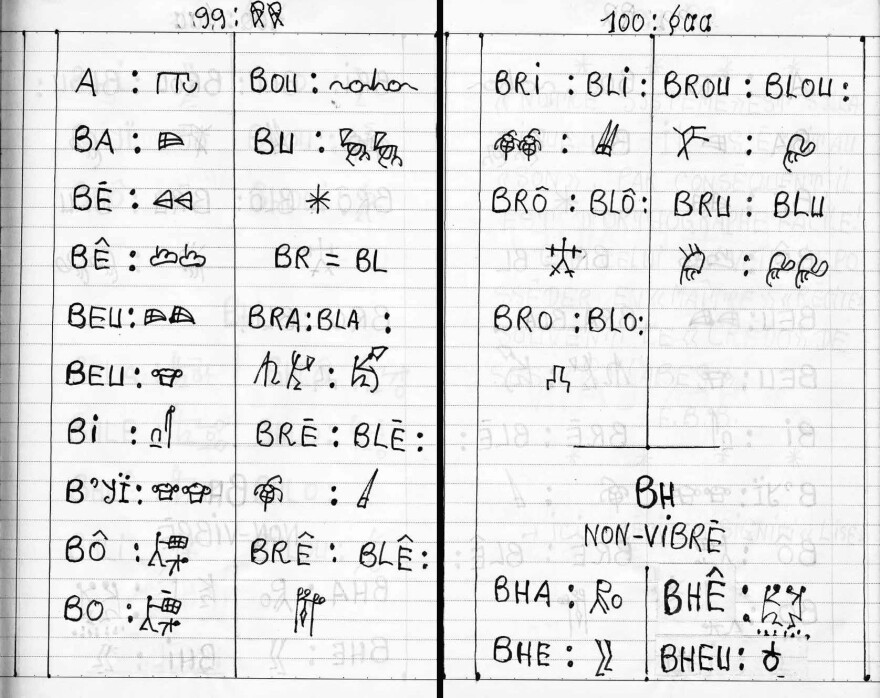 99:
A :
BA :
BĒ :
BÊ :
BEU:
BEU:
Bi :
B'Yï:
BÔ :
BO :
BOU :
BU :
BR = BL
BRA:BLA :
:
BRĒ : BLĒ :
:
BRÊ : BLÊ :
100:
BRi : BLi : BROU : BLOU :
: :
BRÔ : BLÔ : BRU : BLU
:
BRO : BLO:
BH
NON-ViBRĒ
BHA :
BHE :
BHÊ :
BHEU: